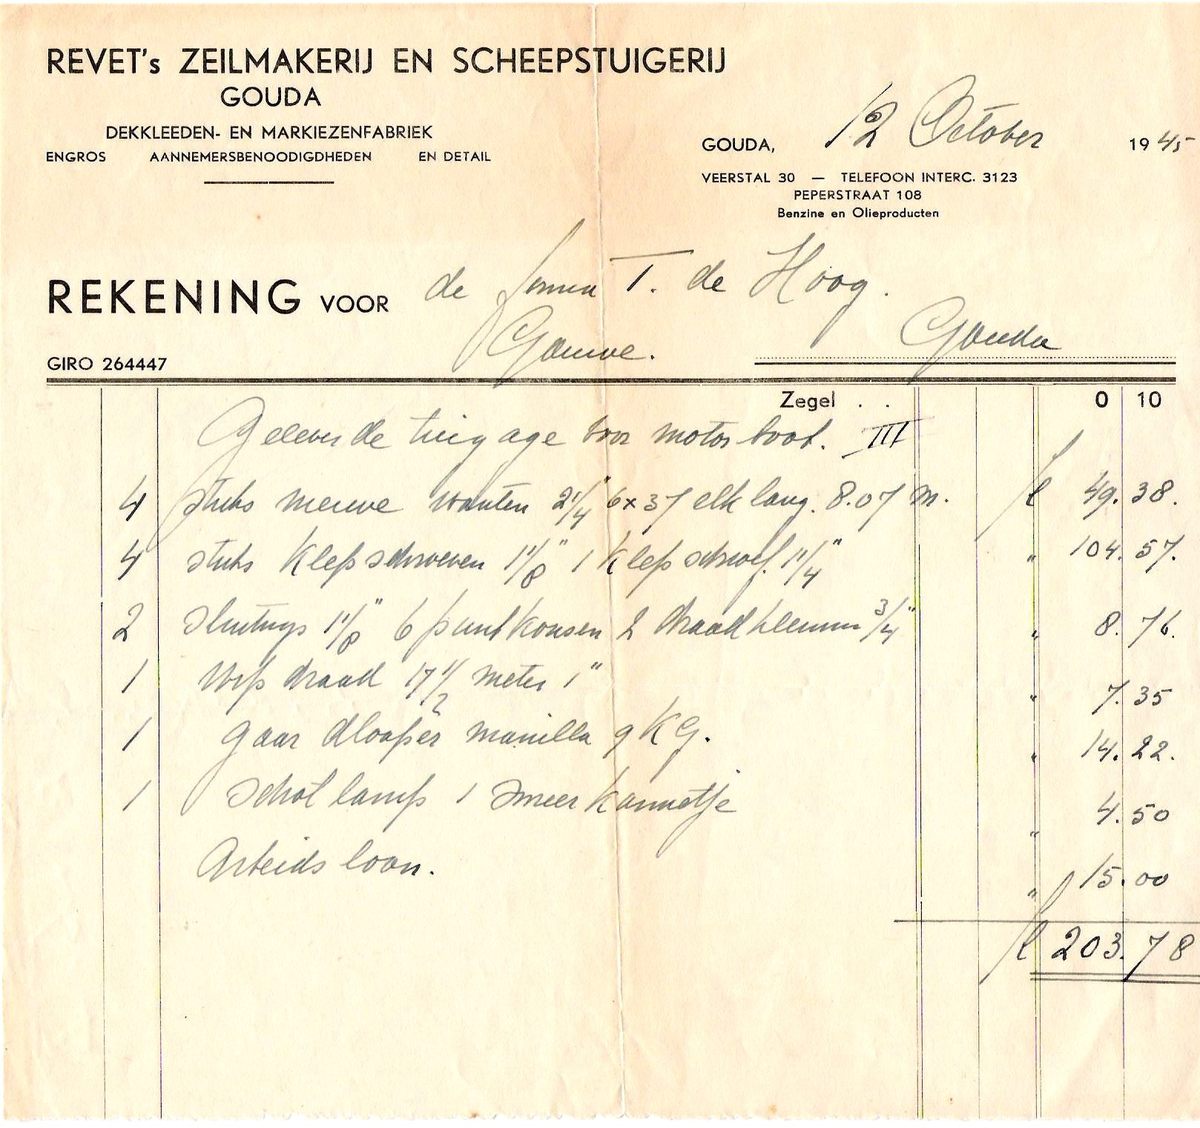 REVET's ZEILMAKERIJ EN SCHEEPSTUIGERIJ
GOUDA
DEKKLEEDEN- EN MARKIEZENFABRIEK
ENGROS AANNEMERSBENOODIGDHEDEN EN DETAIL
GOUDA, 12 October 1945
VEERSTAL 30 — TELEFOON INTERC. 3123
PEPERSTRAAT 108
Benzine en Olieproducten
REKENING VOOR de firma T. de Hoog.
Gouwe. Gouda
GIRO 264447
Zegel . . 0 10
Geleverde tuigage voor motorboot. III
4 stuks nieuwe wanten 2 1/4" 6x37 elk lang. 8.07 m. f 49.38.
4 stuks Klepschroeven 1 1/8" 1 Klepschroef. 1 1/4" " 104.57.
2 sluitings 1 1/8" 6 puntkousen 2 draadklemmen 3/4" " 8.76.
1 draad 17 1/2 meter 1" " 7.35
1 gaar dlooper manilla 9 KG. " 14.22.
1 lamp 1 smeerkannetje " 4.50
Arbeidsloon. " 15.00
f 203.78